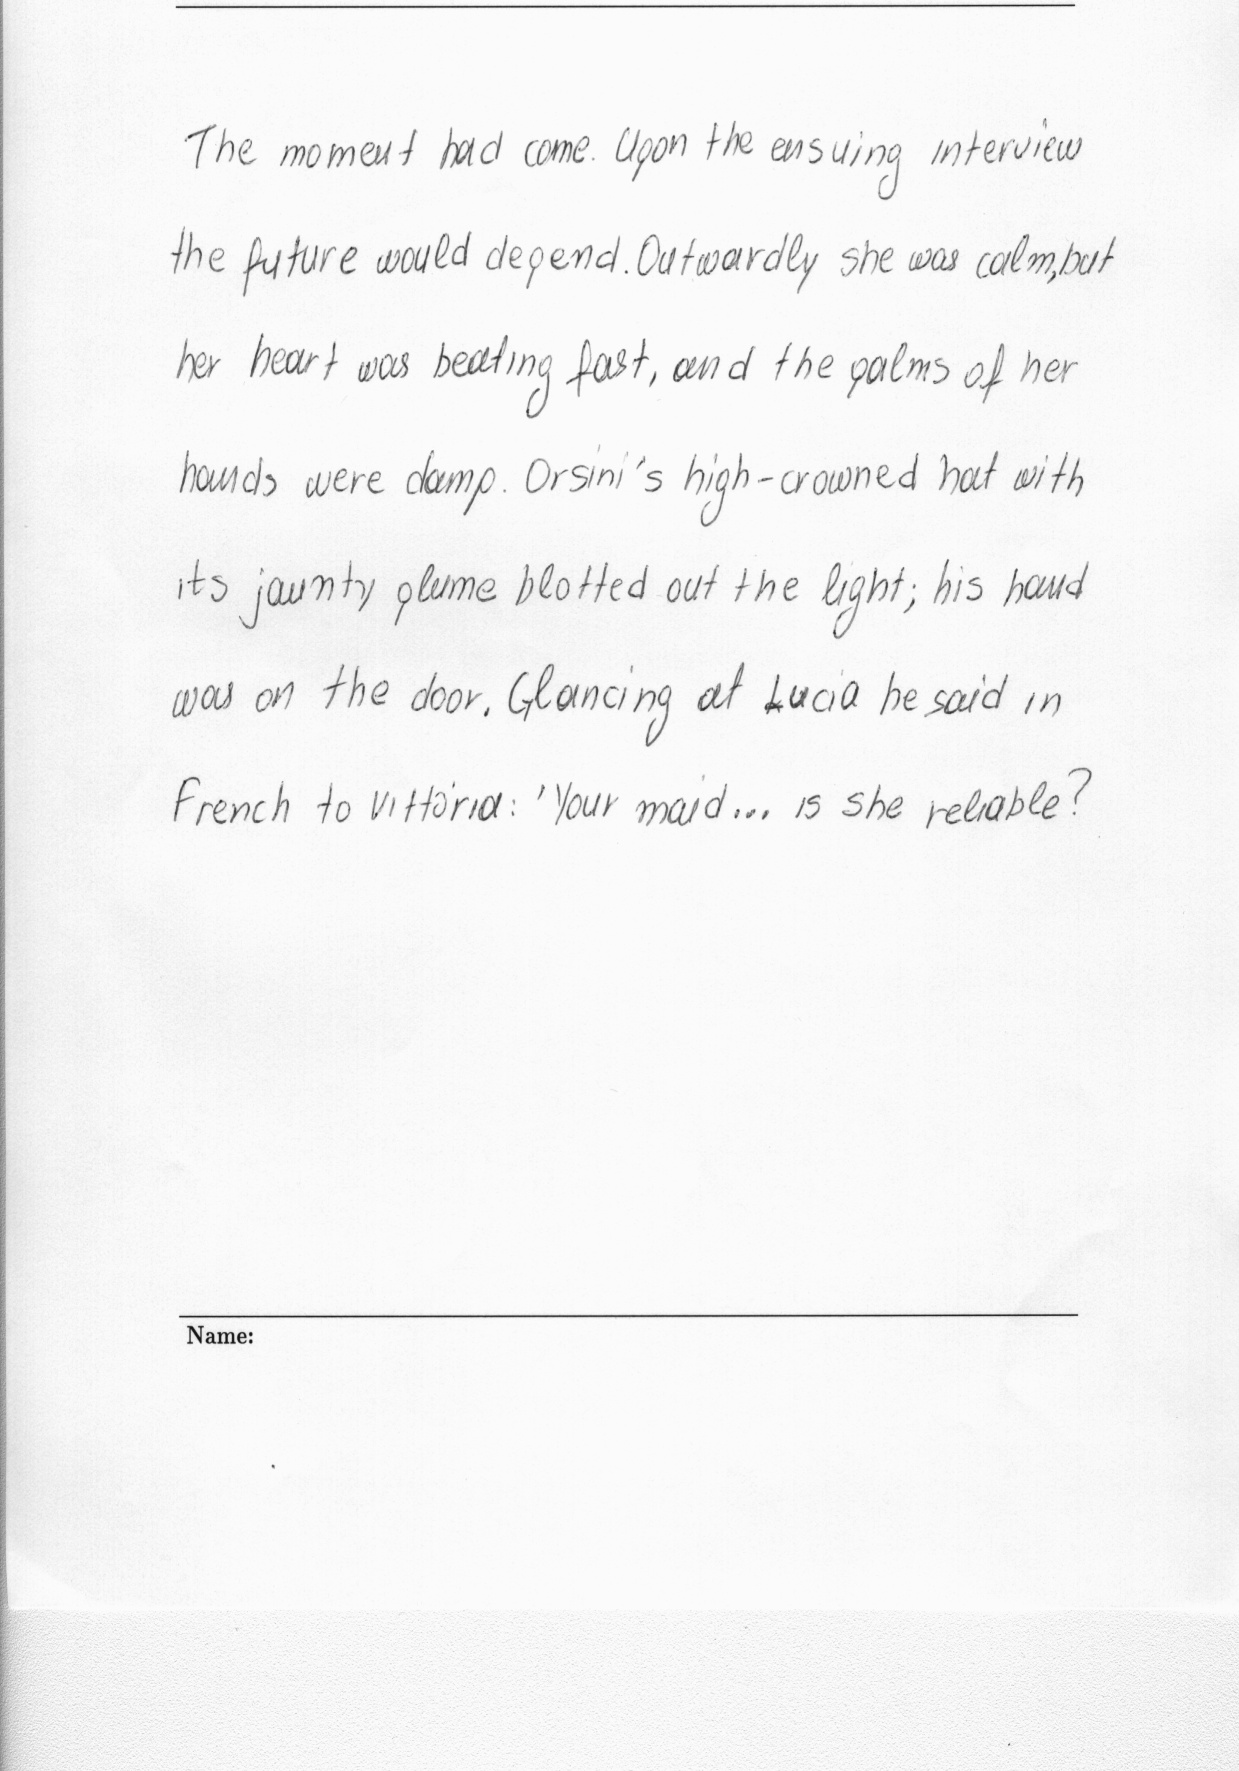 The moment had come. Upon the ensuing interview
the future would depend. Outwardly she was calm, but
her heart was beating fast, and the palms of her
hands were damp. Orsini's high-crowned hat with
its jaunty plume blotted out the light; his hand
was on the door. Glancing at Lucia he said in
French to Vittoria: 'Your maid... is she reliable?
Name: